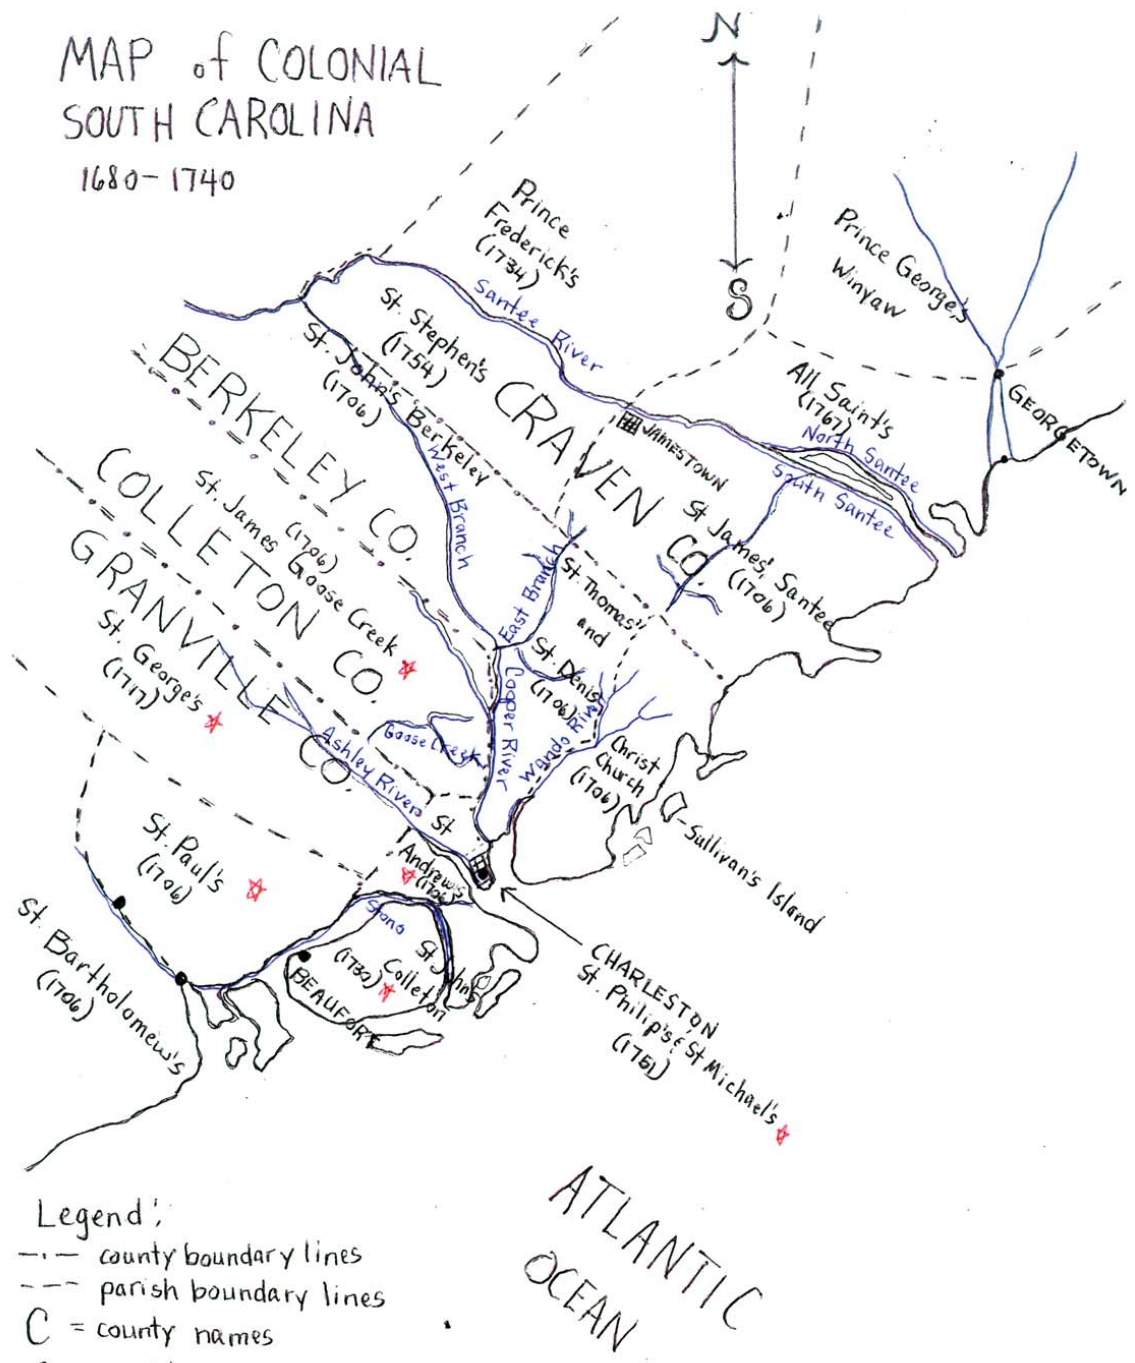 MAP of COLONIAL
SOUTH CAROLINA
1680-1740
N
S
Prince
Frederick's
(1734)
Prince George's
Winyaw
Santee River
St. Stephen's
(1754)
St. John's Berkeley
(1706)
All Saint's
(1767)
North Santee
South Santee
GEORGETOWN
JAMESTOWN
CRAVEN CO.
BERKELEY CO.
COLLETON CO.
GRANVILLE CO.
West Branch
East Branch
St. James Goose Creek
(1706)
St James, Santee
(1706)
St. Thomas'
and
St. Denis
(1706)
St. George's
(1717)
Cooper River
Wando River
Goose Creek
Ashley River
Christ
Church
(1706)
Sullivan's Island
St
Andrew's
(1706)
St. Paul's
(1706)
Stono
St Johns
Colleton
(1730)
BEAUFORT
St. Bartholomew's
(1706)
CHARLESTON
St. Philip's & St Michael's
(1751)
ATLANTIC
OCEAN
Legend:
county boundary lines
parish boundary lines
C = county names